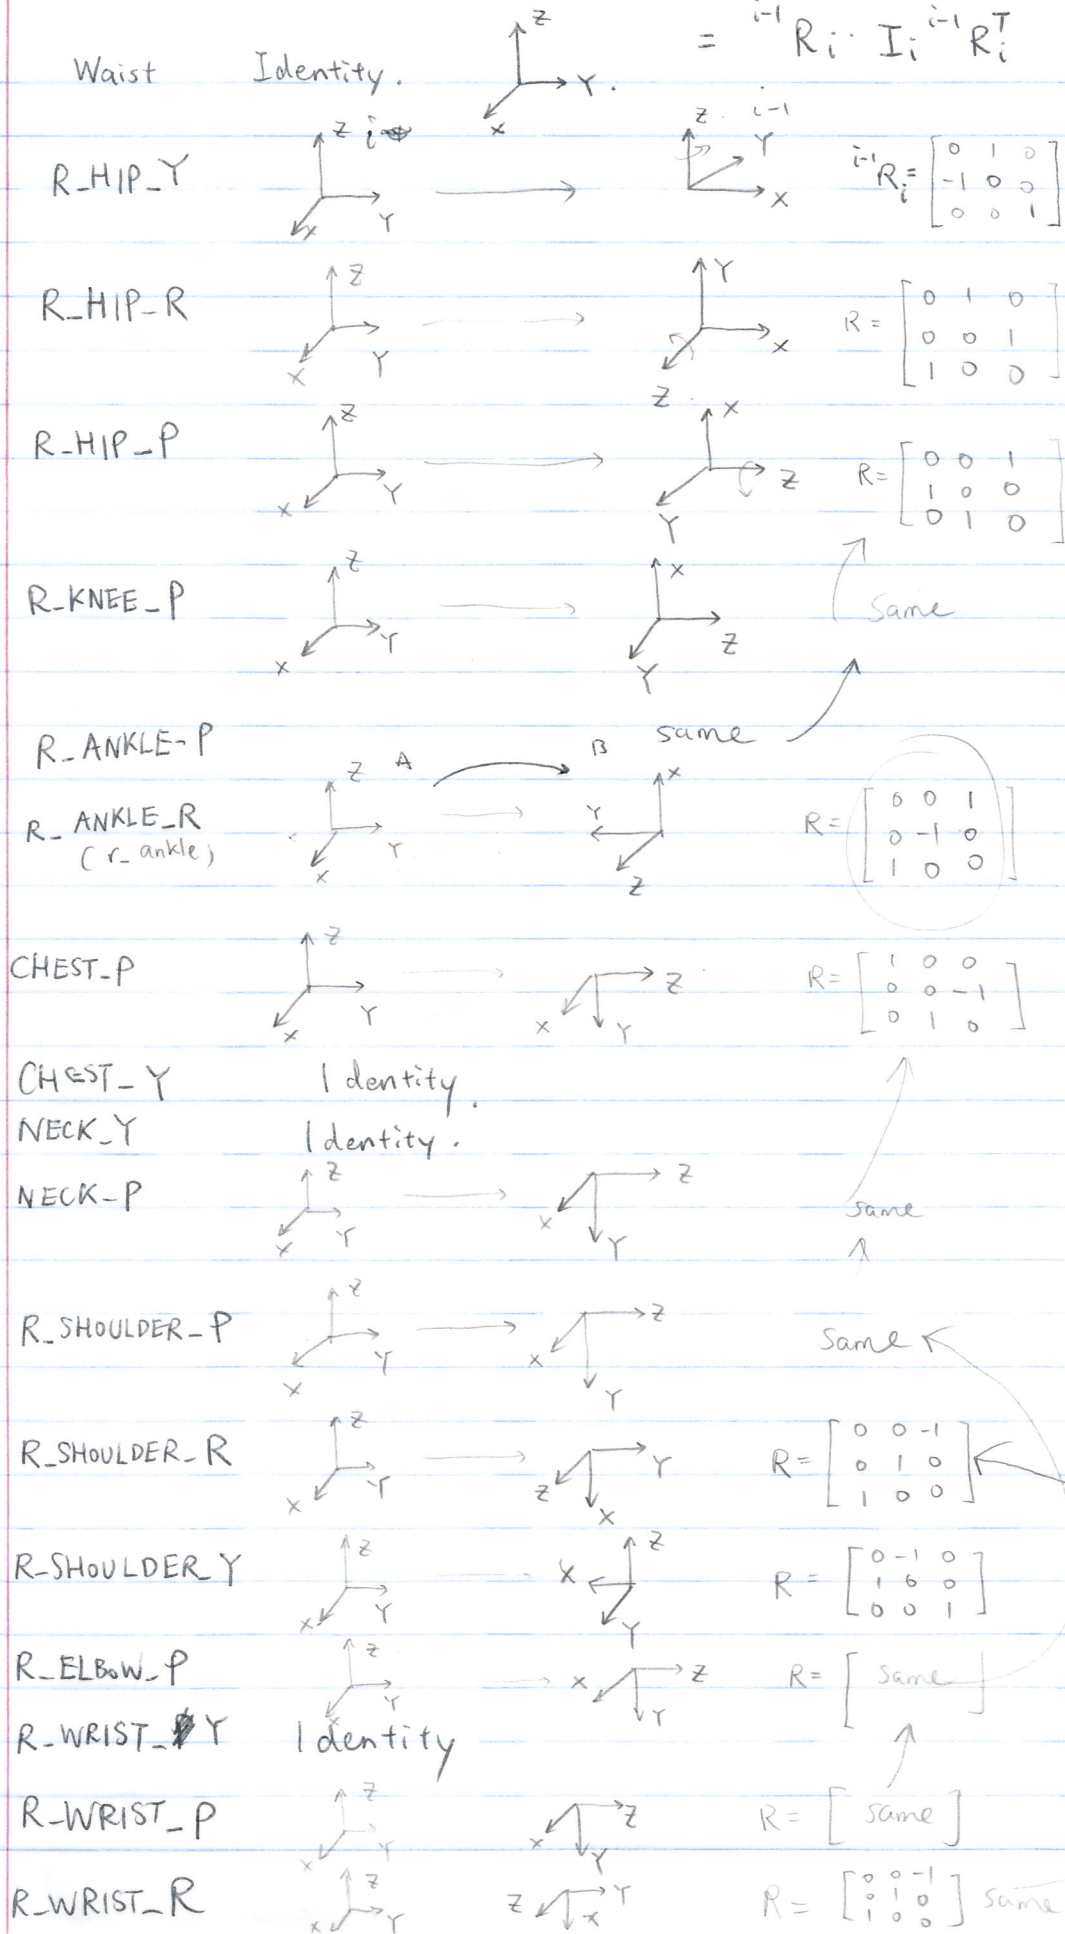 = i-1Ri · Ii i-1RiT
Waist Identity. Z Y. X
R_HIP_Y Z i X Y Z i-1 Y X i-1Ri = [0 1 0
-1 0 0
0 0 1]
R_HIP_R Z Y X Y X Z R = [0 1 0
0 0 1
1 0 0]
R_HIP_P Z Y X X Z Y R = [0 0 1
1 0 0
0 1 0]
R_KNEE_P Z Y X X Z Y Same
R_ANKLE-P same
R_ANKLE_R Z A Y X B X Y Z R = [0 0 1
(r_ankle) 0 -1 0
1 0 0]
CHEST_P Z Y X Z X Y R = [1 0 0
0 0 -1
0 1 0]
CHEST_Y Identity.
NECK_Y Identity.
NECK_P Z Y X Z X Y same
R_SHOULDER_P Z Y X Z X Y Same
R_SHOULDER_R Z Y X Y Z X R = [0 0 -1
0 1 0
1 0 0]
R_SHOULDER_Y Z Y X Z X Y R = [0 -1 0
1 0 0
0 0 1]
R_ELBOW_P Z Y X X Z Y R = [same]
R_WRIST_Y Identity
R_WRIST_P Z Y X Z X Y R = [same]
R_WRIST_R Z Y X Z Y X R = [0 0 -1
0 1 0
1 0 0] same